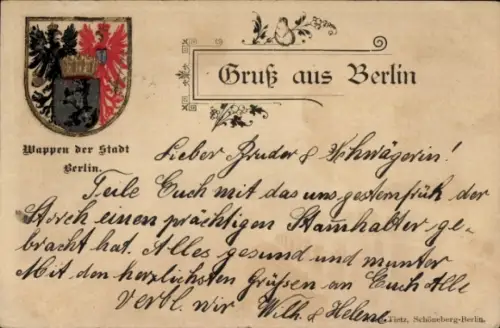 Gruß aus Berlin
Wappen der Stadt
Berlin.
Lieber Bruder & Schwägerin!
Teile Euch mit das uns gestern früh der
Storch einen prächtigen Stam̅halter ge-
bracht hat. Alles gesund und munter
Mit den herzlichsten Grüßen an Euch Alle
verbl. wir Wilh & Helene
Tietz, Schöneberg-Berlin.